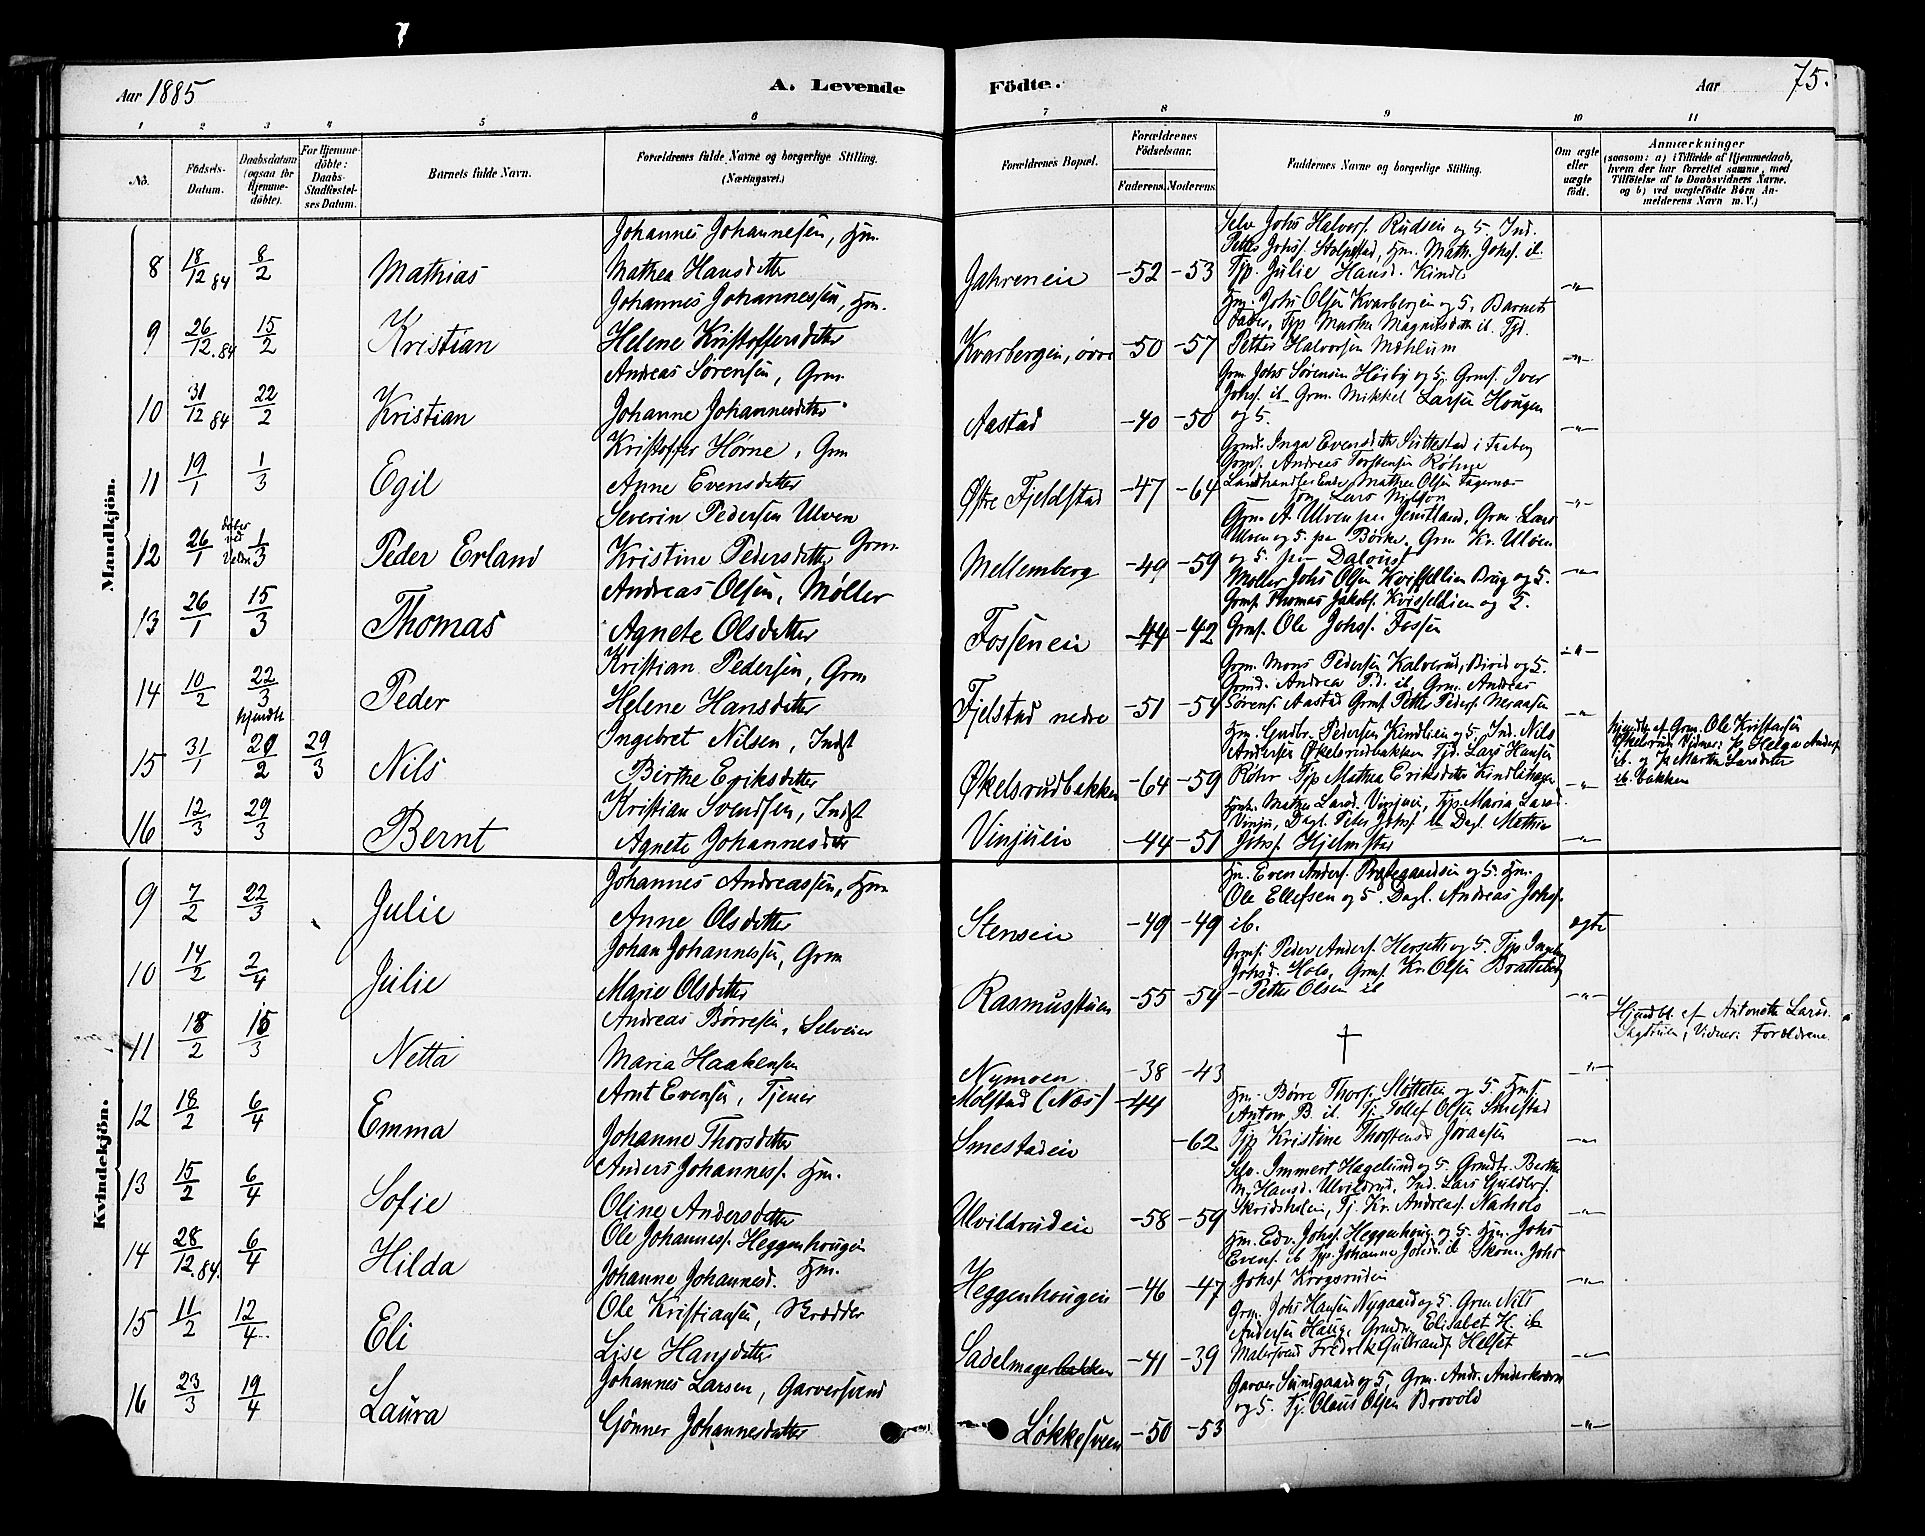 Aar 1885
A. Levende
Födte.
Aar
75.
1 2 3 4 5 6 7 8 9 10 11
No.
Födsels-Datum.
Daabsdatum (ogsaa for Hjemmedöbte).
For Hjemmedöbte: Daabs-Stadfæstelses Datum.
Barnets fulde Navn.
Forældrenes fulde Navne og borgerlige Stilling. (Næringsvei.)
Forældrenes Bopæl.
Forældrenes Födselsaar.
Faderens. Moderens.
Faddernes Navne og borgerlige Stilling.
Om ægte eller uægte födt.
Anmærkninger
(saasom: a) i Tilfælde af Hjemmedaab,
hvem der har forrettet samme, med
Tilföielse af to Daabsvidners Navne.
og b) ved uægtefödte Börn Anmelderens Navn m. V.)
Mandkjön.
8 18/12 84 8/2 Mathias
Johannes Johannesen, Hm.
Mathea Hansdatter
Jahreneie -52 -53
Selv Johs Halvors. Rudseie og 5. Ind.
Petter Johs. Stolpestad, Hm. Math. Johs. ib.
Tjp. Julie Hansd. Kindli
-"-
9 26/12.84 15/2 Kristian
Johannes Johannessen, Hm.
Helene Kristoffersdatter
Kvarbergeie, övre -50 -57
Hm. Johs Olsen Kvarbergeie og 5, Barnets
Fader, Tjp Marthe Magnusdatter ib. Tjd.
Petter Halvorsen Mæhlum
-"-
10 31/12 84 22/2 Kristian
Andreas Sörensen, Grm
Johanne Johannesdatter
Aastad -40 -50
Grm Johs Sörensen Hörby og 5. Grms. Iver
Johs. ib. Grm. Mikkel Larsen Hougen
og 5.
-"-
11 19/1 1/3 Egil
Kristoffer Hörne, Grm
Anne Evensdatter
Østre Fjeldstad -47 -64
Grmd. Inga Evensdatter Sættestad i Faaberg
Grms. Andreas Torstensen Röhne
Mathea Olsen Fagernæs
-"-
12 26/1 1/3 Peder Erland
Severin Pedersen Ulven
Kristine Pedersdatter Grm
Mellemberg -49 -59
Grm A. Ulven paa Jemtland, Grm. Lars
Ulven og 5. paa Börke, Grm Kr. Ulven
og 5. paa
-"-
13 26/1 15/3 Thomas
Andreas Olsen, Møller
Agnete Olsdatter
Fosseneie -44 -42
Møller Johs Olsen Kviffeldlien Brug og 5.
Grms. Thomas Jakobs. Kvisfeldlien og 5.
Grms. Ole Johs. Fossen
-"-
14 10/2 22/3 Peder
Kristian Pedersen, Grm
Helene Hansdatter
Fjelstad nedre -51 -54
Grm. Mons Pedersen Kalverud, Biri og 5.
Grmd. Andrea P.d. ib. Grm. Andreas
Sörens. Aastad Grms. Petter Peders. Meraasen
-"-
15 31/1 hjemdbt 20/2 29/3 Nils
Ingebret Nilsen, Indst
Birthe Eriksdatter
Økelsrudbakken -64 -59
Hm. Gudbr. Pedersen Kindlien og 5. Ind. Nils
Andersen Økelsrudbakken Tjd. Lars Hansen
Röhr Tjp Mathea Eriksdatter Kindlihagen
-"-
hjemdbt af Grm. Ole Kristiansen
Økelsrud Vidner: p. Helga Anders.
ib. og Jp Marthe Larsdatter
ib. bakken
16 12/3 29/3 Bernt
Kristian Svendsen, Indst
Agnete Johannesdatter
Vinjueie -44 -51
Mathea Larsd. Vinjuei, Tjp. Maria Larsd.
Vinju, Dagl. Peter Johs. ib Dagl. Mathias
Johs. Hjelmstad
-"-
Kvindekjön.
9 7/2 22/3 Julie
Johannes Andreassen, Hm
Anne Olsdatter
Stenseie -49 -49
Hm. Even Anders. Prestegaardseie og 5. Hm.
Ole Ellefsen og 5. Dagl. Andreas Johs.
ib.
ægte
10 14/2 2/4 Julie
Johan Johannessen, Grm
Marie Olsdatter
Rasmusstuen -55 -54
Grms. Peder Anders. Hersetti og 5. Tjp
Johsd. Holo, Grms. Kr. Olsen Bratteberg
- Petter Olsen ib
-"-
11 18/2 15/3 Netta
Andreas Börresen, Selveier
Maria Haakensen
Nymoen -38 -43
†
-"-
Hjmdbt. af Antonette Larsd.
Sagstuen, Vidner: Forældrene.
12 18/2 6/4 Emma
Arnt Evensen, Tjener
Johanne Thorsdatter
Molstad (Næs) -44
Smestadeie -62
Hm. Börre Thors. Slötteie og 5. Hms.
Anton B. ib. Tj. Tollef Olsen Smestad
Tjp Kristine Thorstensd Joraasen
-"-
13 15/2 6/4 Sofie
Anders Johanness. Hm.
Oline Andersdatter
Ulvildrudeie -58 -59
Selv. Immert Hagelund og 5. Grmdtr. Berthe
M. Hansd. Ulvildrud, Ind. Lars Guldbrs.
Skridsholeie, Tj. Kr. Andreass. Narholo
-"-
14 28/12.84. 6/4 Hilda
Ole Johanness. Heggenhougen
Johanne Johannesd. Hm.
Heggenhougeie -46 -47
Hm. Edv. Johs. Heggenhoug. og 5. Hm. Johs
Evens. ib Tjp. Johanne Johsd. ib Skom. Johs
Johs. Krogsrudeie
-"-
15 11/2 12/4 Eli
Ole Kristiansen, Skrædder
Lise Hansdatter
Sadelmagerbakken -41 -39
Grm. Johs Hansen Nygaard og 5. Grm Nils
Andersen Haug, Grmdtr. Elisabet H. ib
Malersvend Fredrik Gulbrands. Helset
-"-
16 23/3 19/4 Laura
Johannes Larsen, Garversvend
Gönner Johannesdatter
Løkkesveen -50 -53
Garver Sundgaard og 5, Grm. Andr. Anderkværn
og 5. Tj. Olaus Olsen Brovold
-"-